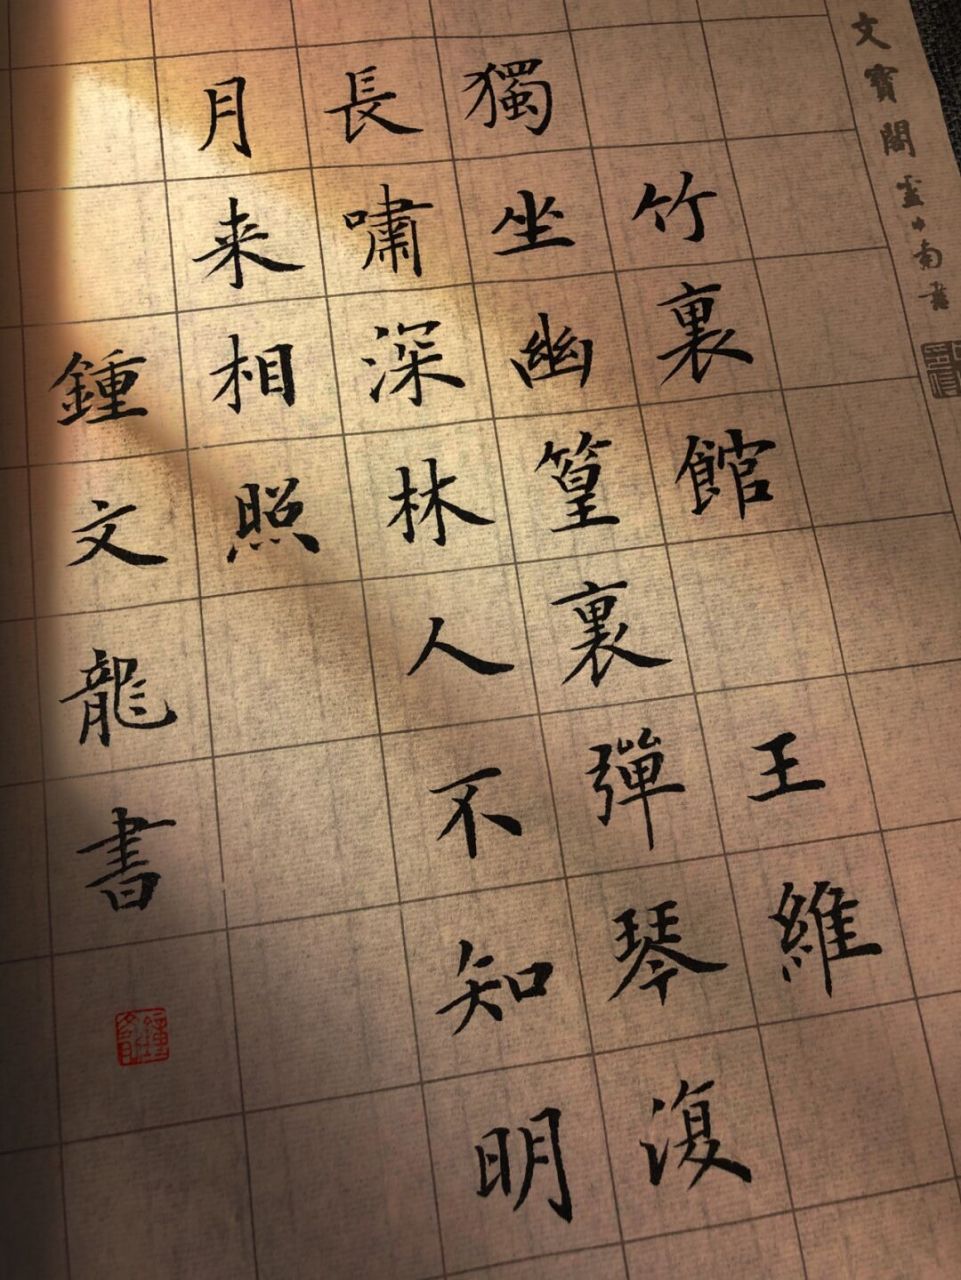 文寶閣
竹裏館 王維
獨坐幽篁裏彈琴復
長嘯深林人不知明
月来相照
鍾文龍書